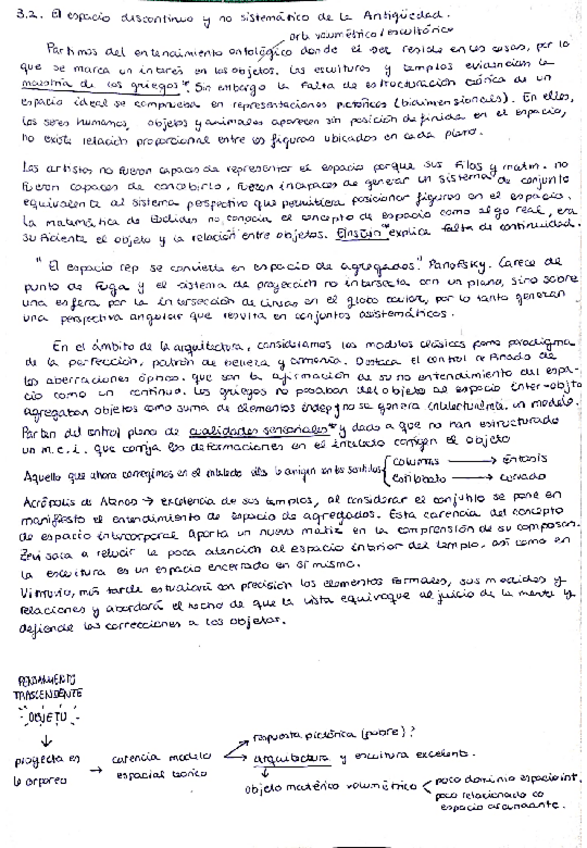 3.2. El espacio discontinuo y no sistemático de la Antigüedad.
orla volumétrico/escultórico
Partimos del entendimiento ontológico donde el ser reside en las cosas, por lo
que se marca un interés en los objetos. Las esculturas y templos evidencian la
maestría de los griegos". Sin embargo la falta de estructuración teórica de un
espacio ideal se comprueba en representaciones pictóricas (bidimensionales). En ellos,
los seres humanos, objetos y animales aparecen sin posición definida en el espacio,
no existe relación proporcional entre las figuras ubicadas en cada plano.
Los artistas no fueron capaces de representar el espacio porque sus filos y matm. no
fueron capaces de concebirlo, fueron incapaces de generar un sistema de conjunto
equivalente al sistema perspectivo que permitiera posicionar figuras en el espacio.
La matemática de Euclides no conocía el concepto de espacio como algo real, era
suficiente el objeto y la relación entre objetos. Einstein "explica falta de continuidad.
" El espacio rep se convierte en espacio de agregados." Panofsky. Carece de
punto de fuga y el sistema de proyección no intersecta con un plano, sino sobre
una esfera por la intersección de líneas en el globo ocular, por lo tanto generan
una perspectiva angular que resulta en conjuntos asistemáticos.
En el ámbito de la arquitectura, consideramos los modelos clásicos como paradigma
de la perfección, patrón de belleza y armonía. Destaca el control refinado de
las aberraciones ópticas. que son la afirmación de su no entendimiento del espa-
cio como un continuo. Los griegos no pasaban del objeto al espacio inter-objto
agregaban objetos como suma de elementos indep y no se genera intelectualmte. un modelo.
Partan del control pleno de cualidades sensoriales" y dado a que no han estructurado
un m.c.i. que corrija las deformaciones en el intelecto corrigen el objeto
Aquello que ahora corregimos en el intelecto ellos lo corrigen en los sentidos { columnas → éntasis
estilobato → curvado
Acrópolis de Atenas → excelencia de sus templos, al considerar el conjunto se pone en
manifiesto el entendimiento de espacio de agregados. Esta carencia del concepto
de espacio intercorporal aporta un nuevo matiz en la comprensión de su composicn.
Zevi saca a relucir la poca atención al espacio interior del templo, así como en
la escultura es un espacio encerrado en sí mismo.
Vitruvio, más tarde estudiará con precisión los elementos formales, sus medidas y
relaciones y abordará el hecho de que la vista equivoque al juicio de la mente y
defiende las correcciones a los objetos.
PENSAMIENTO
TRASCENDENTE
- OBJETO -
↓
proyecta en
lo corpóreo
→ carencia modelo
espacial teórico
→ respuesta pictórica (pobre)?
→ arquitectura y escultura excelente.
↓
objeto matérico volumétrico < poco dominio espacio int.
poco relacionado co
espacio circundante.